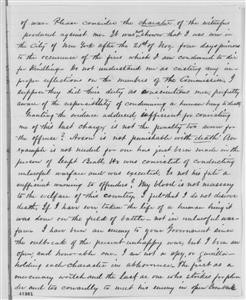 of war. Please consider the character of the witnesses
produced against me. It was shown that I was seen in
the City of New York after the 21st of Nov. four days previous
to the occurrence of the fires which I am condemned to die
for Kindling. Do not understand me as casting any im-
proper reflections on the members of the Commission, I
suppose they did their duty as conscientious men properly
aware of the responsibility of condemning a human being to death
Granting the evidence adduced sufficient for convicting
me of this last charge is not the penalty too severe for
the offence? Arson is not punishable with death. An
example is not needed for one has just been made in the
person of Capt Beall. He was convicted of conducting
unlawful warfare and was executed. Is not his fate a
sufficient warning to offenders? My blood is not necessary
to the welfare of this country. I feel that I do not deserve
death. If I have ever taken the life of a human being it
was done on the field of battle - not in unlawful war-
fare. I have been an enemy to your Government since
the outbreak of the present unhappy war but I have been an
open and honorable one. I am not a spy, or guerilla -
holding each character in abhorrence. The first as a
mercenary wretch and the last as one who strikes for plun-
der and too cowardly to meet his enemy in open combat
41981